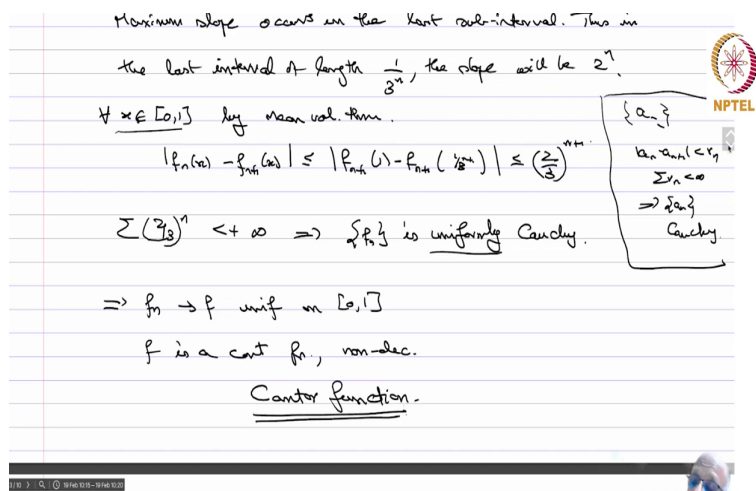 Maximum slope occurs in the last sub-interval. Thus in
the last interval of length 1/3ⁿ, the slope will be 2ⁿ.
∀ x ∈ [0,1] by mean val. thm.
|fₙ(x) - fₙ₊₁(x)| ≤ |fₙ₊₁(1) - fₙ₊₁(1/3ⁿ⁺¹)| ≤ (2/3)ⁿ⁺¹.
Σ(2/3)ⁿ < +∞ ⇒ {fₙ} is uniformly Cauchy.
⇒ fₙ → f unif on [0,1]
f is a cont fn., non-dec.
Cantor function.
{aₙ}
|aₙ - aₙ₊₁| < rₙ
Σrₙ < ∞
⇒ {aₙ}
Cauchy.
NPTEL
19 Feb 10:15 – 19 Feb 10:20